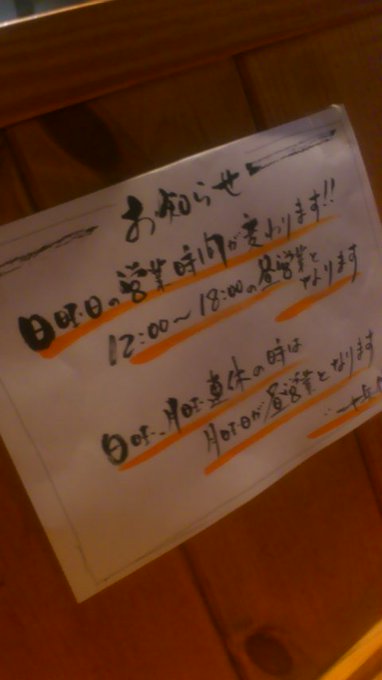 お知らせ
日曜日の営業時間が変わります!!
12:00〜18:00の昼営業と
なります
日曜、月曜連休の時は
月曜日が昼営業となります